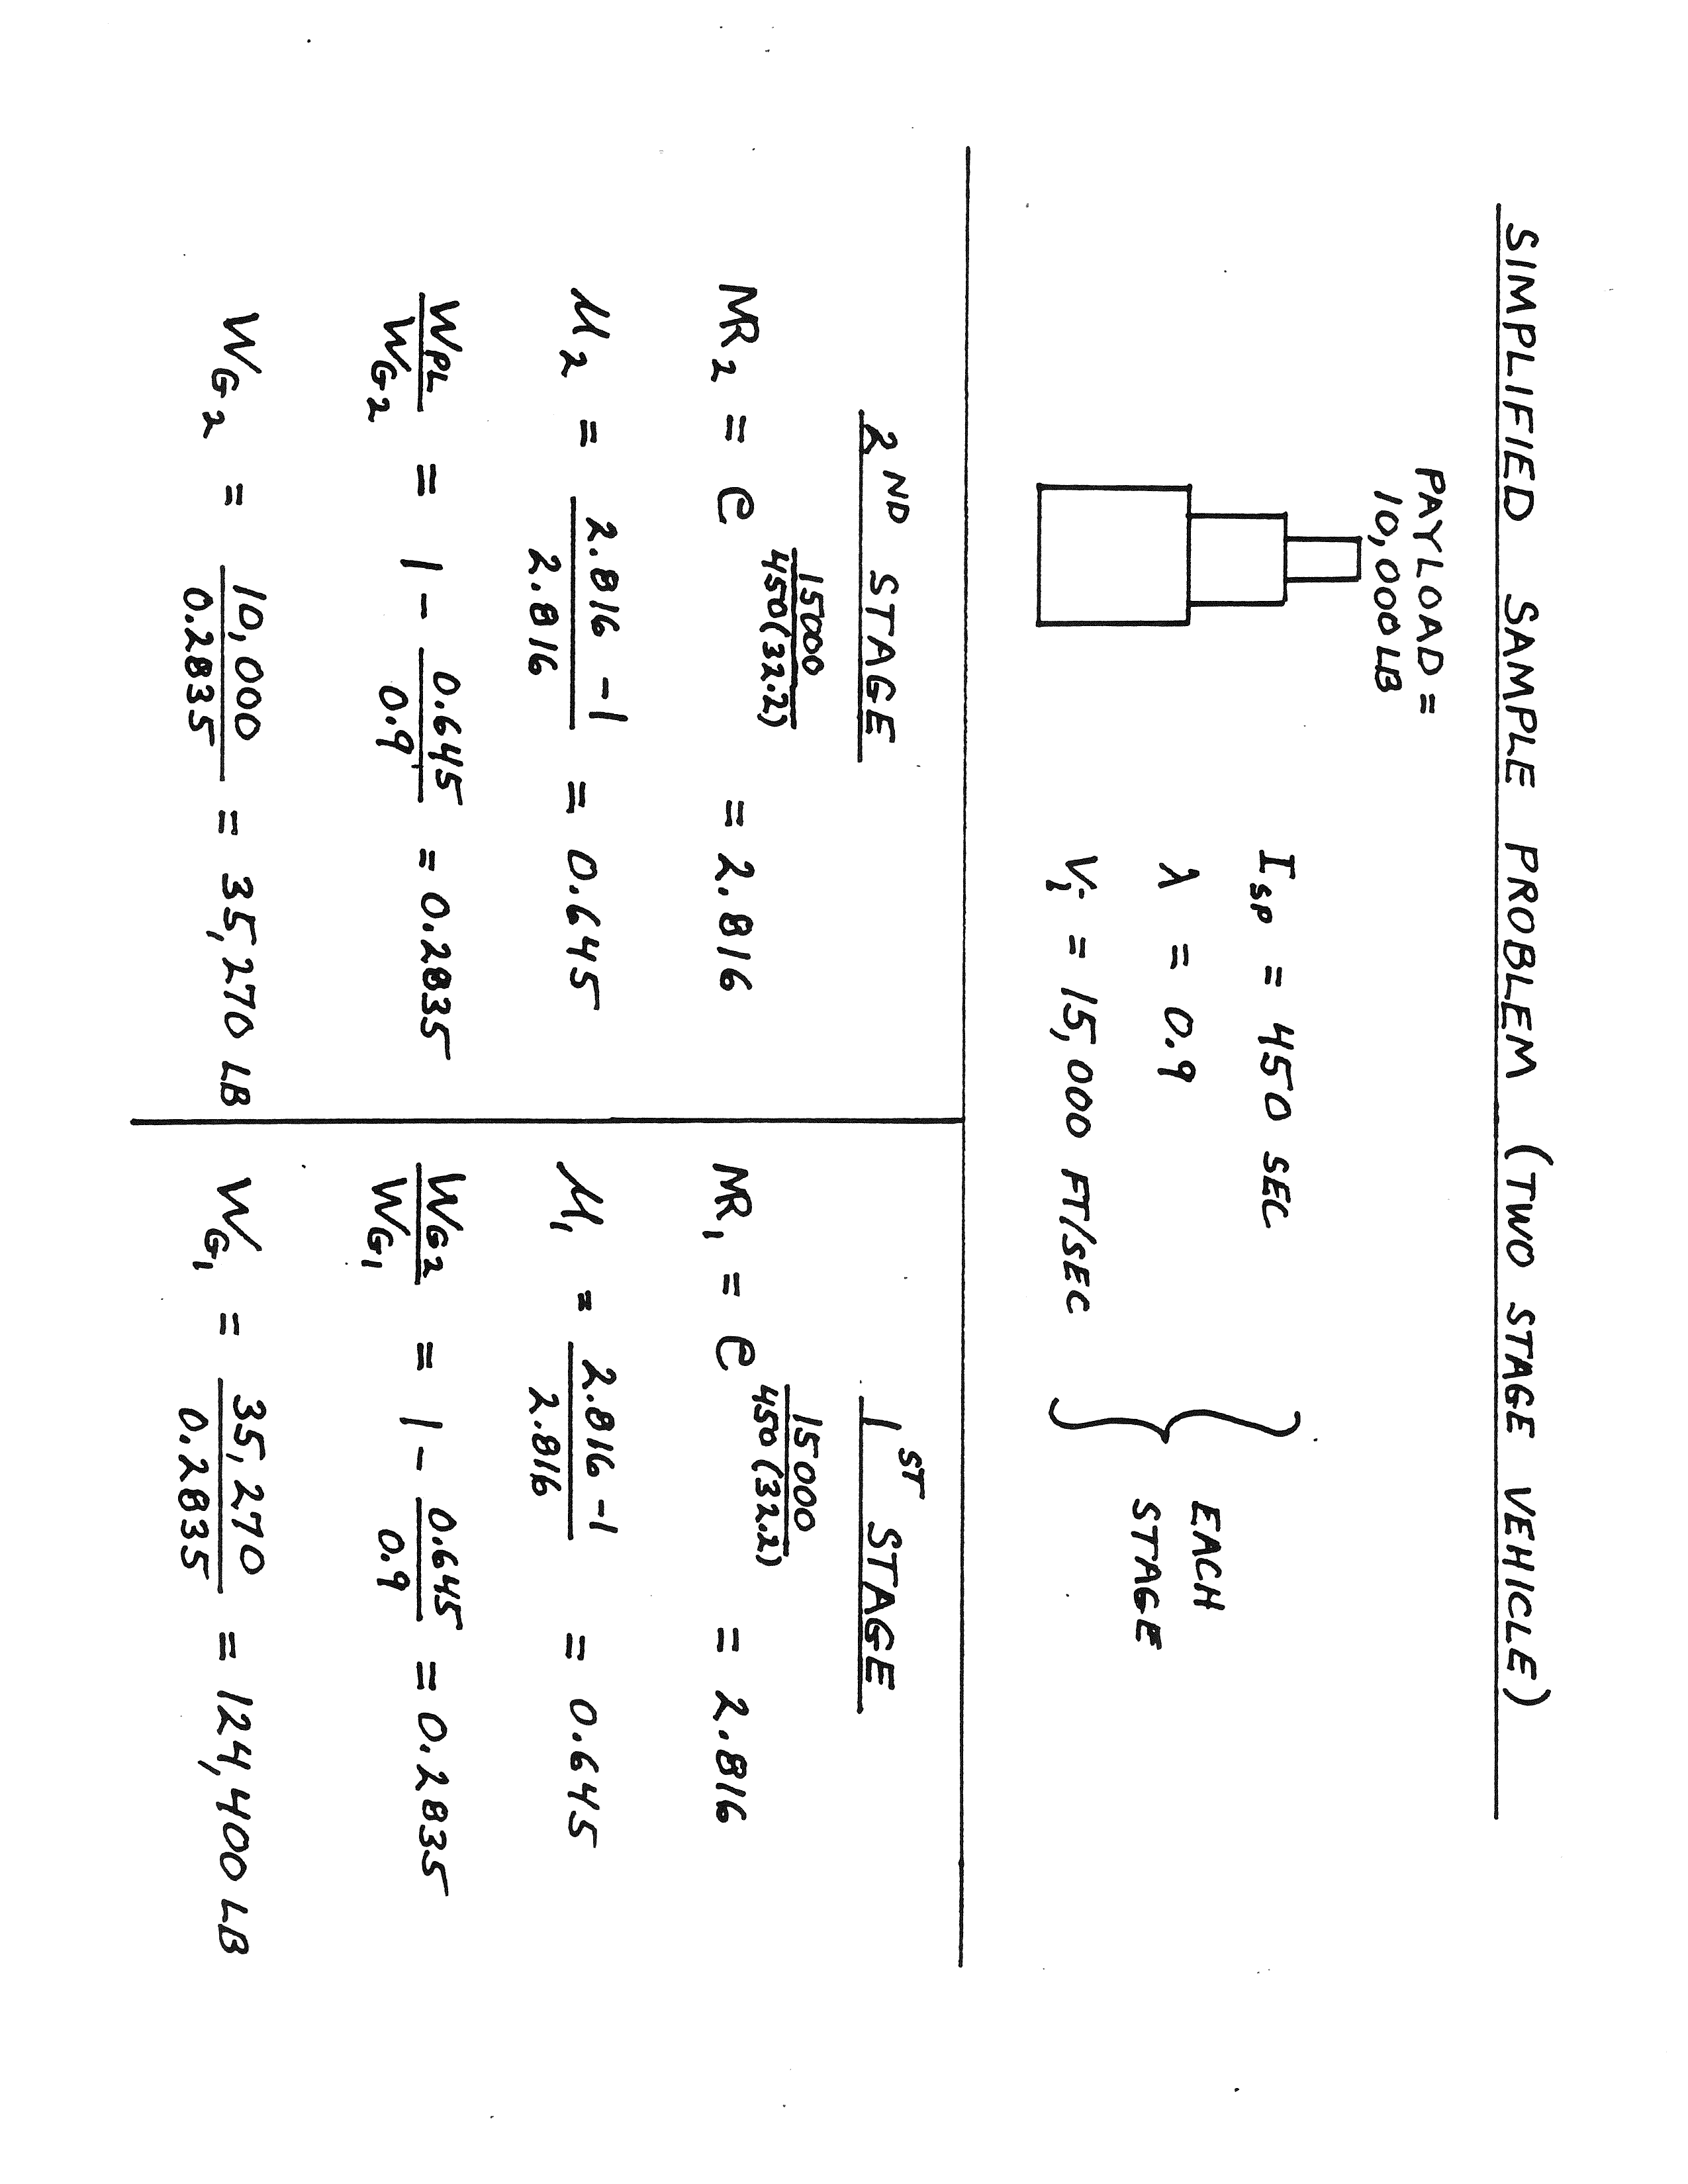 SIMPLIFIED SAMPLE PROBLEM (TWO STAGE VEHICLE)
PAYLOAD =
10,000 LB
I_SP = 450 SEC
λ = 0.9
V_i = 15,000 FT/SEC
EACH
STAGE
2^ND STAGE
MR_2 = e^(15000 / 450(32.2)) = 2.816
μ_2 = (2.816 - 1) / 2.816 = 0.645
W_PL / W_G2 = 1 - 0.645 / 0.9 = 0.2835
W_G2 = 10,000 / 0.2835 = 35,270 LB
1^ST STAGE
MR_1 = e^(15000 / 450(32.2)) = 2.816
μ_1 = (2.816 - 1) / 2.816 = 0.645
W_G2 / W_G1 = 1 - 0.645 / 0.9 = 0.2835
W_G1 = 35,270 / 0.2835 = 124,400 LB